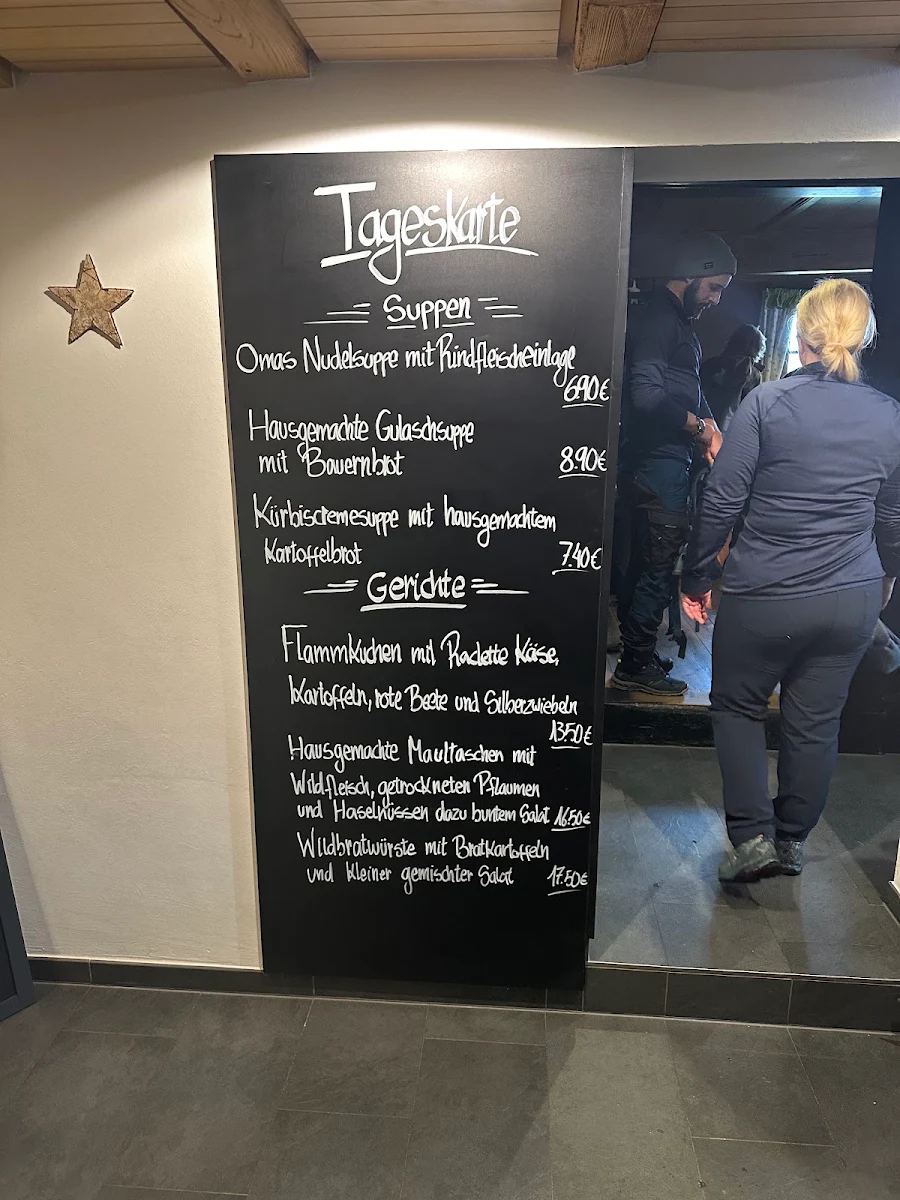 Tageskarte
Suppen
Omas Nudelsuppe mit Rindfleischeinlage
6.90€
Hausgemachte Gulaschsuppe
mit Bauernbrot 8.90€
Kürbiscremesuppe mit hausgemachtem
Kartoffelbrot 7.40€
Gerichte
Flammkuchen mit Raclette Käse,
Kartoffeln, rote Beete und Silberzwiebeln
13.50€
Hausgemachte Maultaschen mit
Wildfleisch, getrockneten Pflaumen
und Haselnüssen dazu buntem Salat 16.50€
Wildbratwürste mit Bratkartoffeln
und kleiner gemischter Salat 17.50€